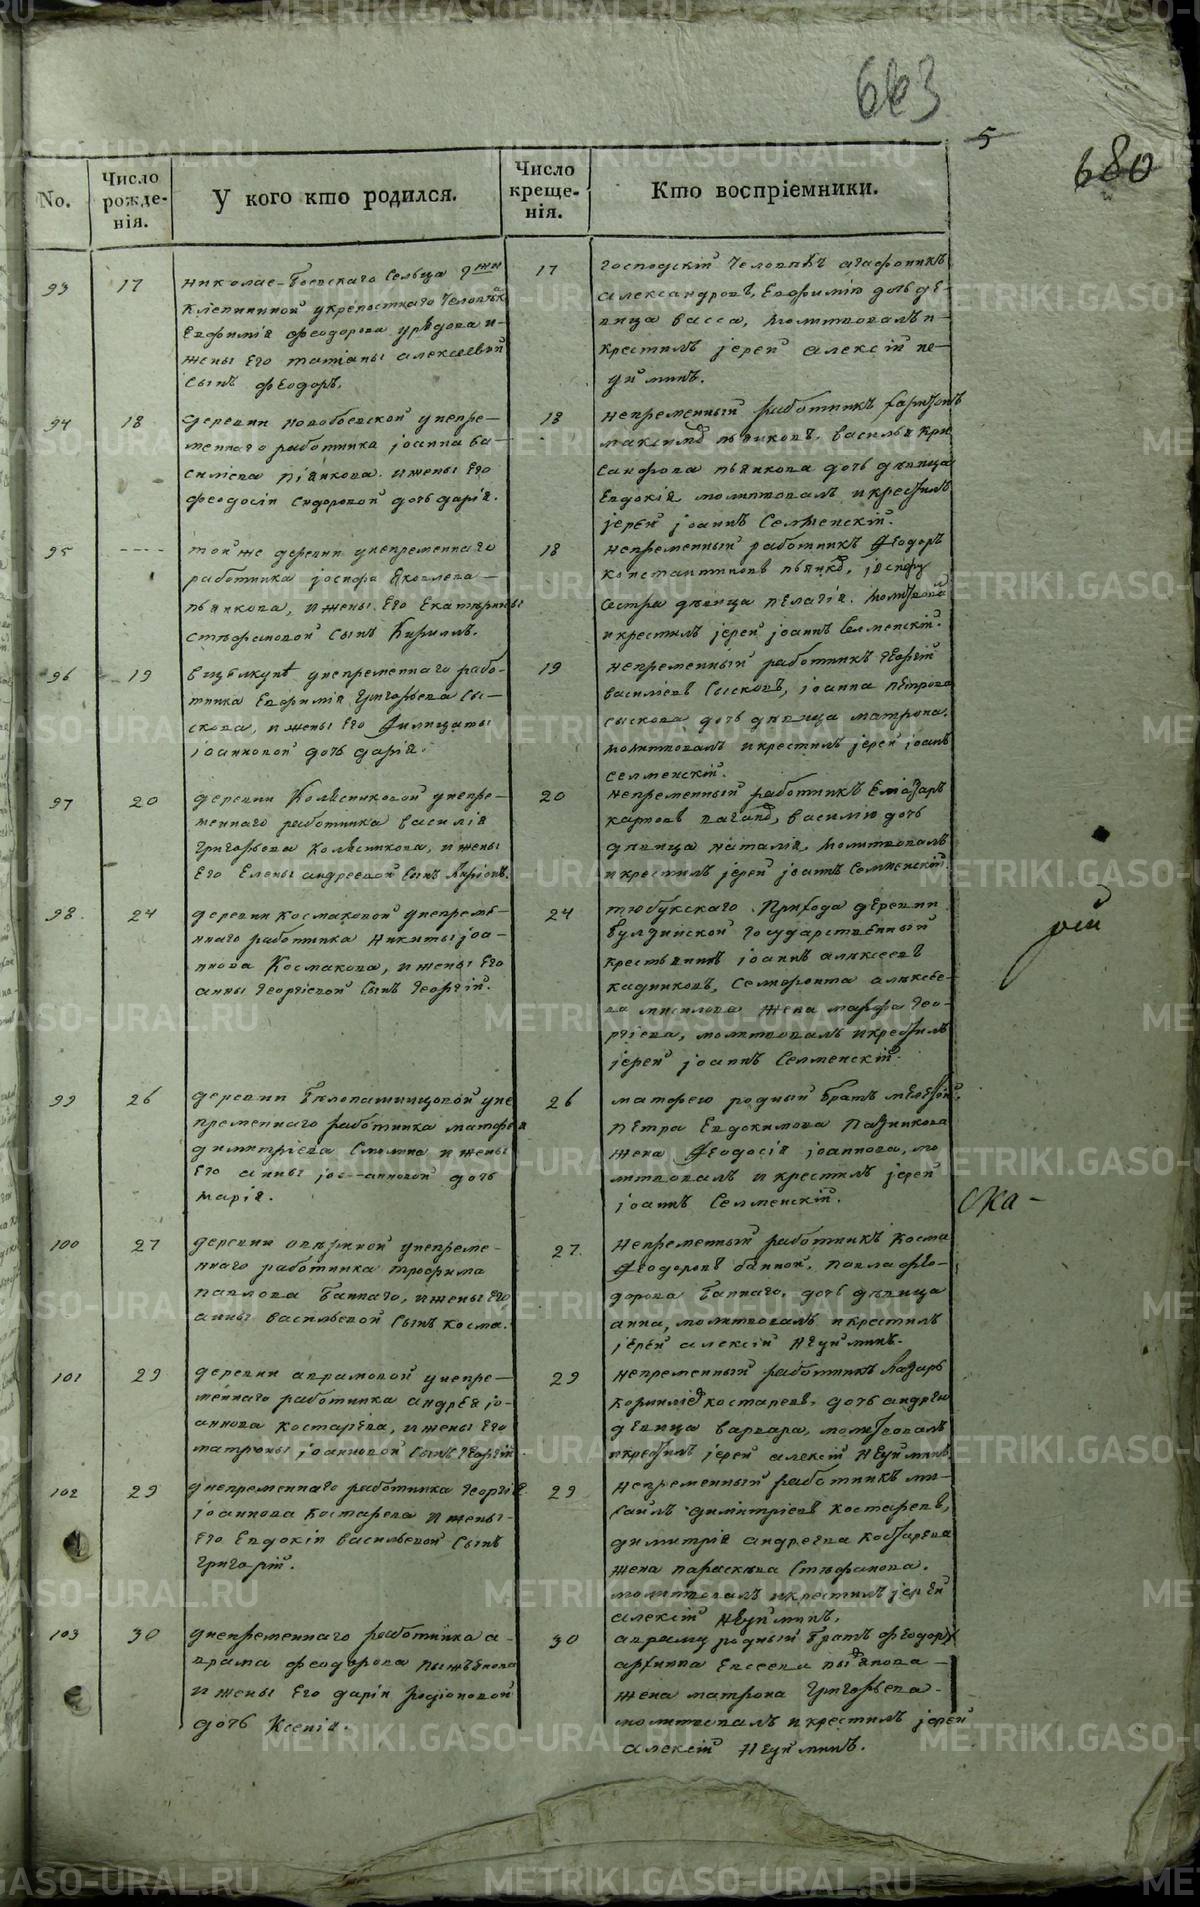 663
5
680
No.
Число рожде-нія.
У кого кто родился.
Число креще-нія.
Кто воспріемники.
93
17
Николае-боевскаго селца
у крепостнаго человѣка
Евфимія Феодорова
жены его татіаны алексеевой
сынъ феодоръ.
17
господскій человѣкъ агафоникъ
александровъ, Евфимію дочь дѣ-
вица васса, молитвовалъ и
крестилъ іерей алексій не-
уйминъ.
94
18
деревни новобоевской у непре-
меннаго работника іоанна ва-
силіева піянкова. и жены его
феодосіи сидоровой дочь дарія.
18
непременный работникъ
пьянковъ.
пьянкова дочь дѣвица
Евдокія молитвовалъ и крестилъ
іерей іоаннъ Селменскій.
95
----
той же деревни у непременнаго
работника іосифа Яковлева
пьянкова, и жены его Екатерины
стефановой сынъ Кириллъ.
18
непременный работникъ Феодоръ
константиновъ іосифу
сестра дѣвица пелагія. молитвовалъ
и крестилъ іерей іоаннъ Селменскій.
96
19
у непременнаго рабо-
тника Евфимія Григорьева сы-
скова, и жены его Филицаты
іоанновой дочь дарія.
19
непременный работникъ Георгій
василіевъ сысковъ, іоанна петрова
сыскова дочь дѣвица матрона.
молитвовалъ и крестилъ іерей іоаннъ
селменскій.
97
20
деревни Колѣсниковой у непре-
меннаго работника василія
григорьева колѣсникова, и жены
его Елены андреевой сынъ
20
непременный работникъ
карповъ василію дочь
дѣвица наталія, молитвовалъ
и крестилъ іерей іоаннъ Селменскій.
98.
24
деревни космаковой у непреме-
ннаго работника никиты іоа-
ннова Космакова, и жены его
анны георгіевой сынъ георгій.
24
тюбукскаго прихода деревни
булдинской государственный
крестьянинъ іоаннъ алексеевъ
кадниковъ,
жена марфа гео-
ргіева, молитвовалъ и крестилъ
іерей іоаннъ Селменскій.
99
26
деревни бѣлопашинцовой у не
пременнаго работника матфея
димитріева Смолина и жены
его анны іоанновой дочь
марія.
26
матфею родный братъ
петра Евдокимова
жена Феодосія іоаннова, мо-
литвовалъ и крестилъ іерей
іоаннъ Селменскій.
100
27
деревни у непреме-
ннаго работника трофима
павлова баннаго, и жены его
анны васильевой сынъ косма.
27.
Непременный работникъ косма
Феодоровъ банной, павла фео-
дорова баннаго, дочь дѣвица
анна, молитвовалъ и крестилъ
іерей алексій Неуйминъ.
101
29
деревни аврамовой у непре-
меннаго работника андрея іо-
аннова костарева, и жены его
матроны іоанновой сынъ георгій
29
непременный работникъ лазарь
костаревъ, дочь андрею
дѣвица варвара, молитвовалъ
и крестилъ іерей алексій Неуйминъ
102
29
у непременнаго работника георгія
іоаннова костарева и жены
его Евдокіи васильевой сынъ
григорій.
29
непременный работникъ ми-
хаилъ димитріевъ костаревъ,
димитрія андреева костарева
жена параскева стефанова.
молитвовалъ и крестилъ іерей
алексій Неуйминъ.
103
30
у непременнаго работника а-
врама феодорова пьянкова
и жены его даріи родіоновой
дочь Ксенія.
30
авраму родный братъ феодоръ
архипа Евсеева
жена матрона григорьева
молитвовалъ и крестилъ іерей
алексій Неуйминъ.
рей
ска-
METRIKI.GASO-URAL.RU